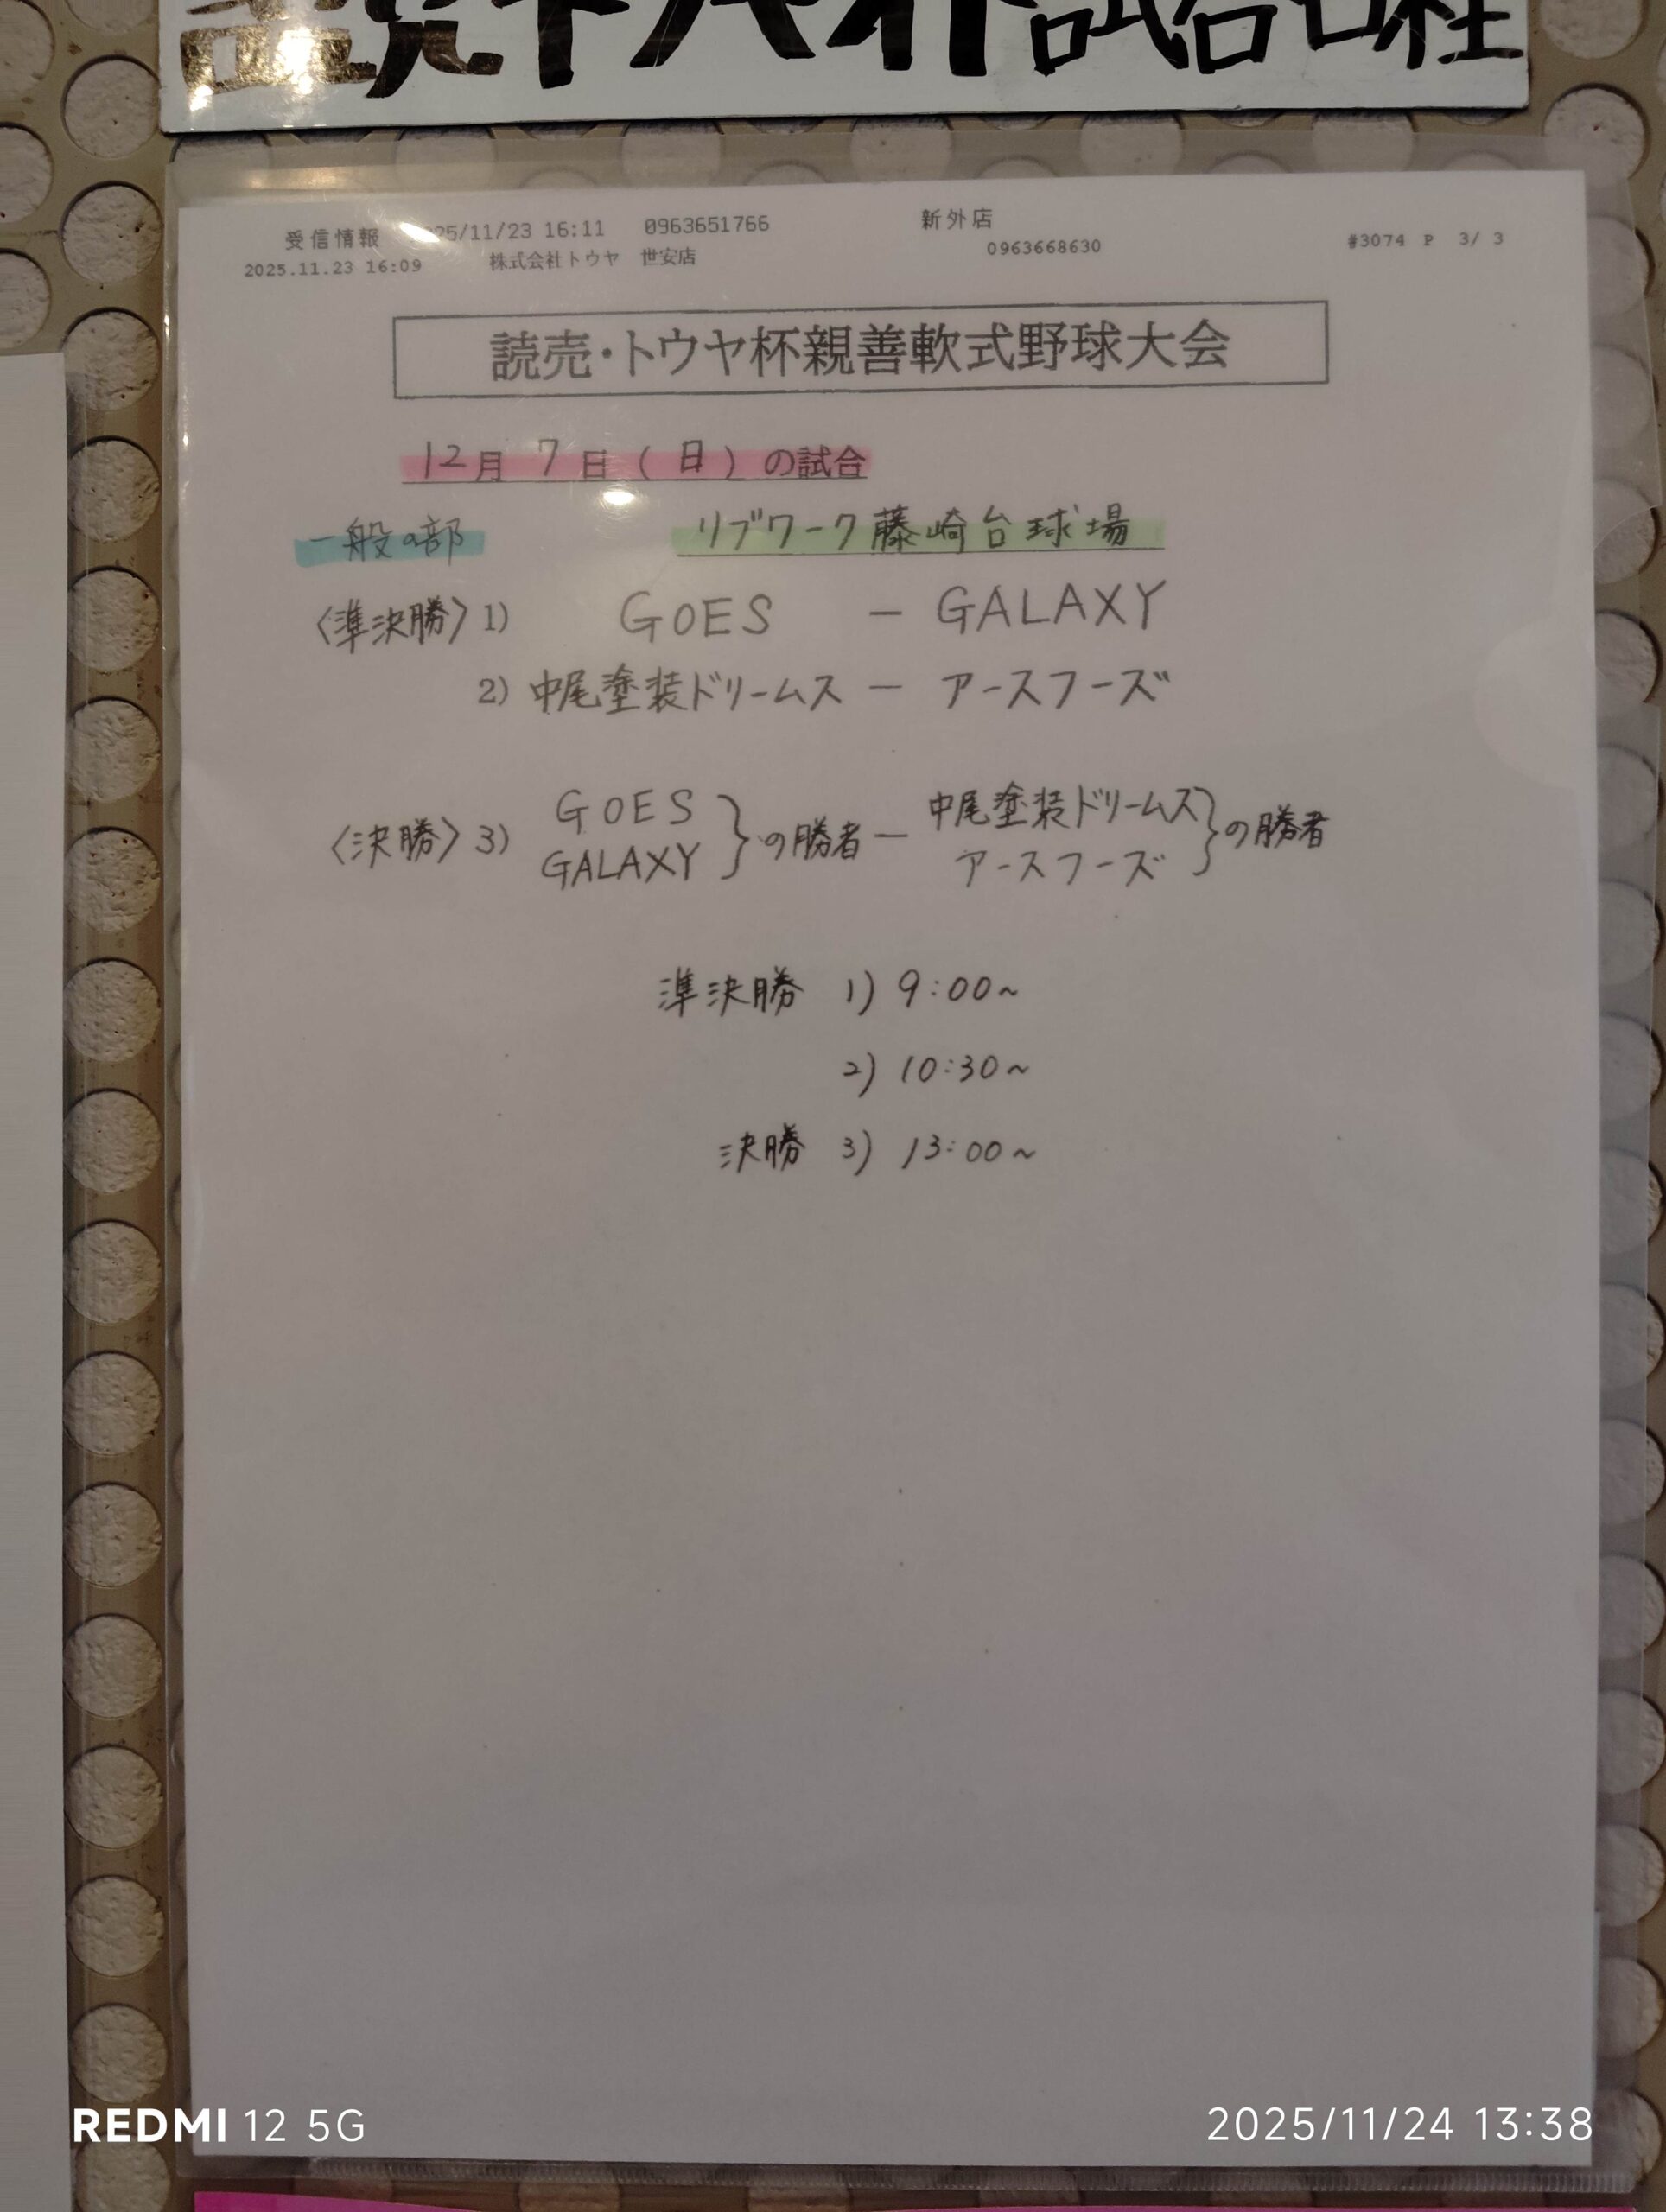 読売トウヤ杯試合日程
受信情報 25/11/23 16:11 0963651766 新外店
2025.11.23 16:09 株式会社トウヤ 世安店 0963668630 #3074 P 3/ 3
読売・トウヤ杯親善軟式野球大会
12月 7日(日)の試合
一般の部 リブワーク藤崎台球場
〈準決勝〉1) GOES － GALAXY
2) 中尾塗装ドリームス － アースフーズ
〈決勝〉3) GOES GALAXY }の勝者－ 中尾塗装ドリームス アースフーズ }の勝者
準決勝 1) 9:00~
2) 10:30~
決勝 3) 13:00~
REDMI 12 5G
2025/11/24 13:38